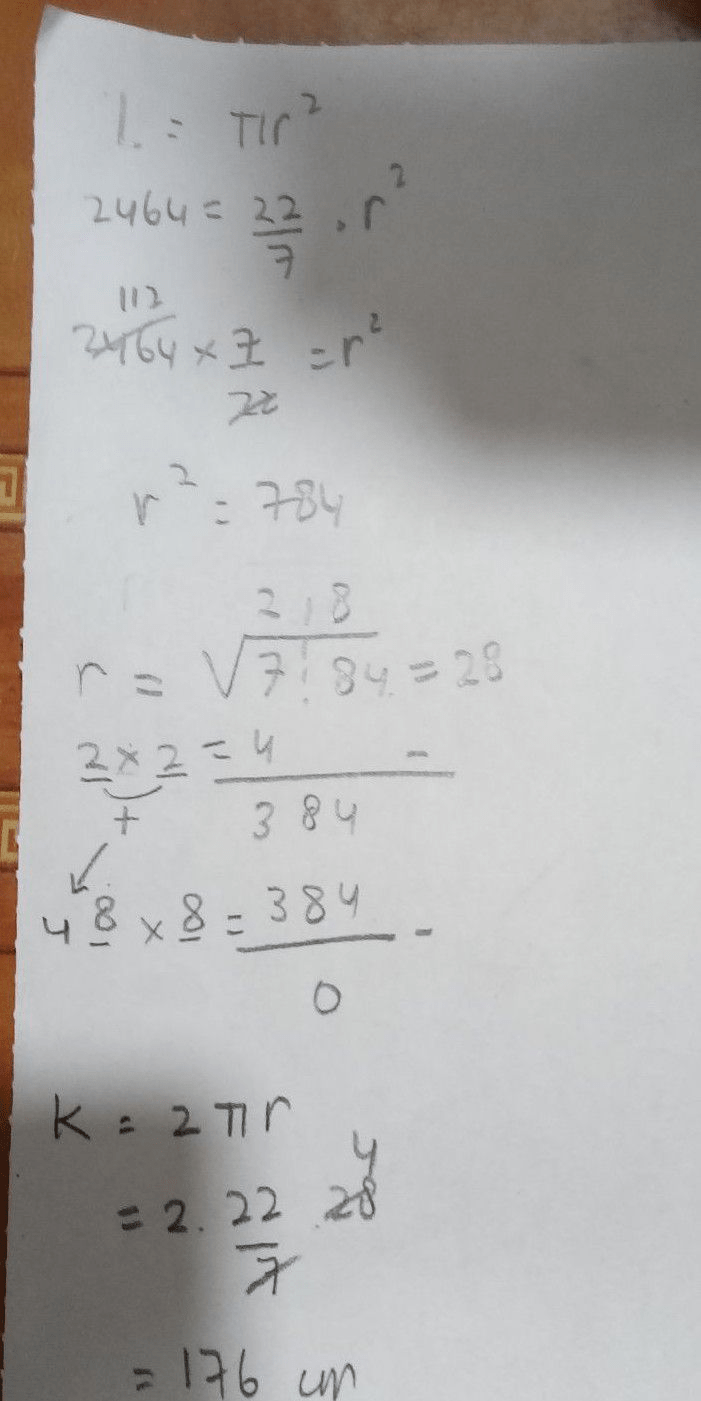 L = πr²
2464 = 22/7 . r²
112
2464 × 7/22 = r²
r² = 784
2 8
r = √7 84 = 28
2 × 2 = 4 -
+
384
48 × 8 = 384 -
0
K = 2πr
4
= 2. 22/7 .28
= 176 cm